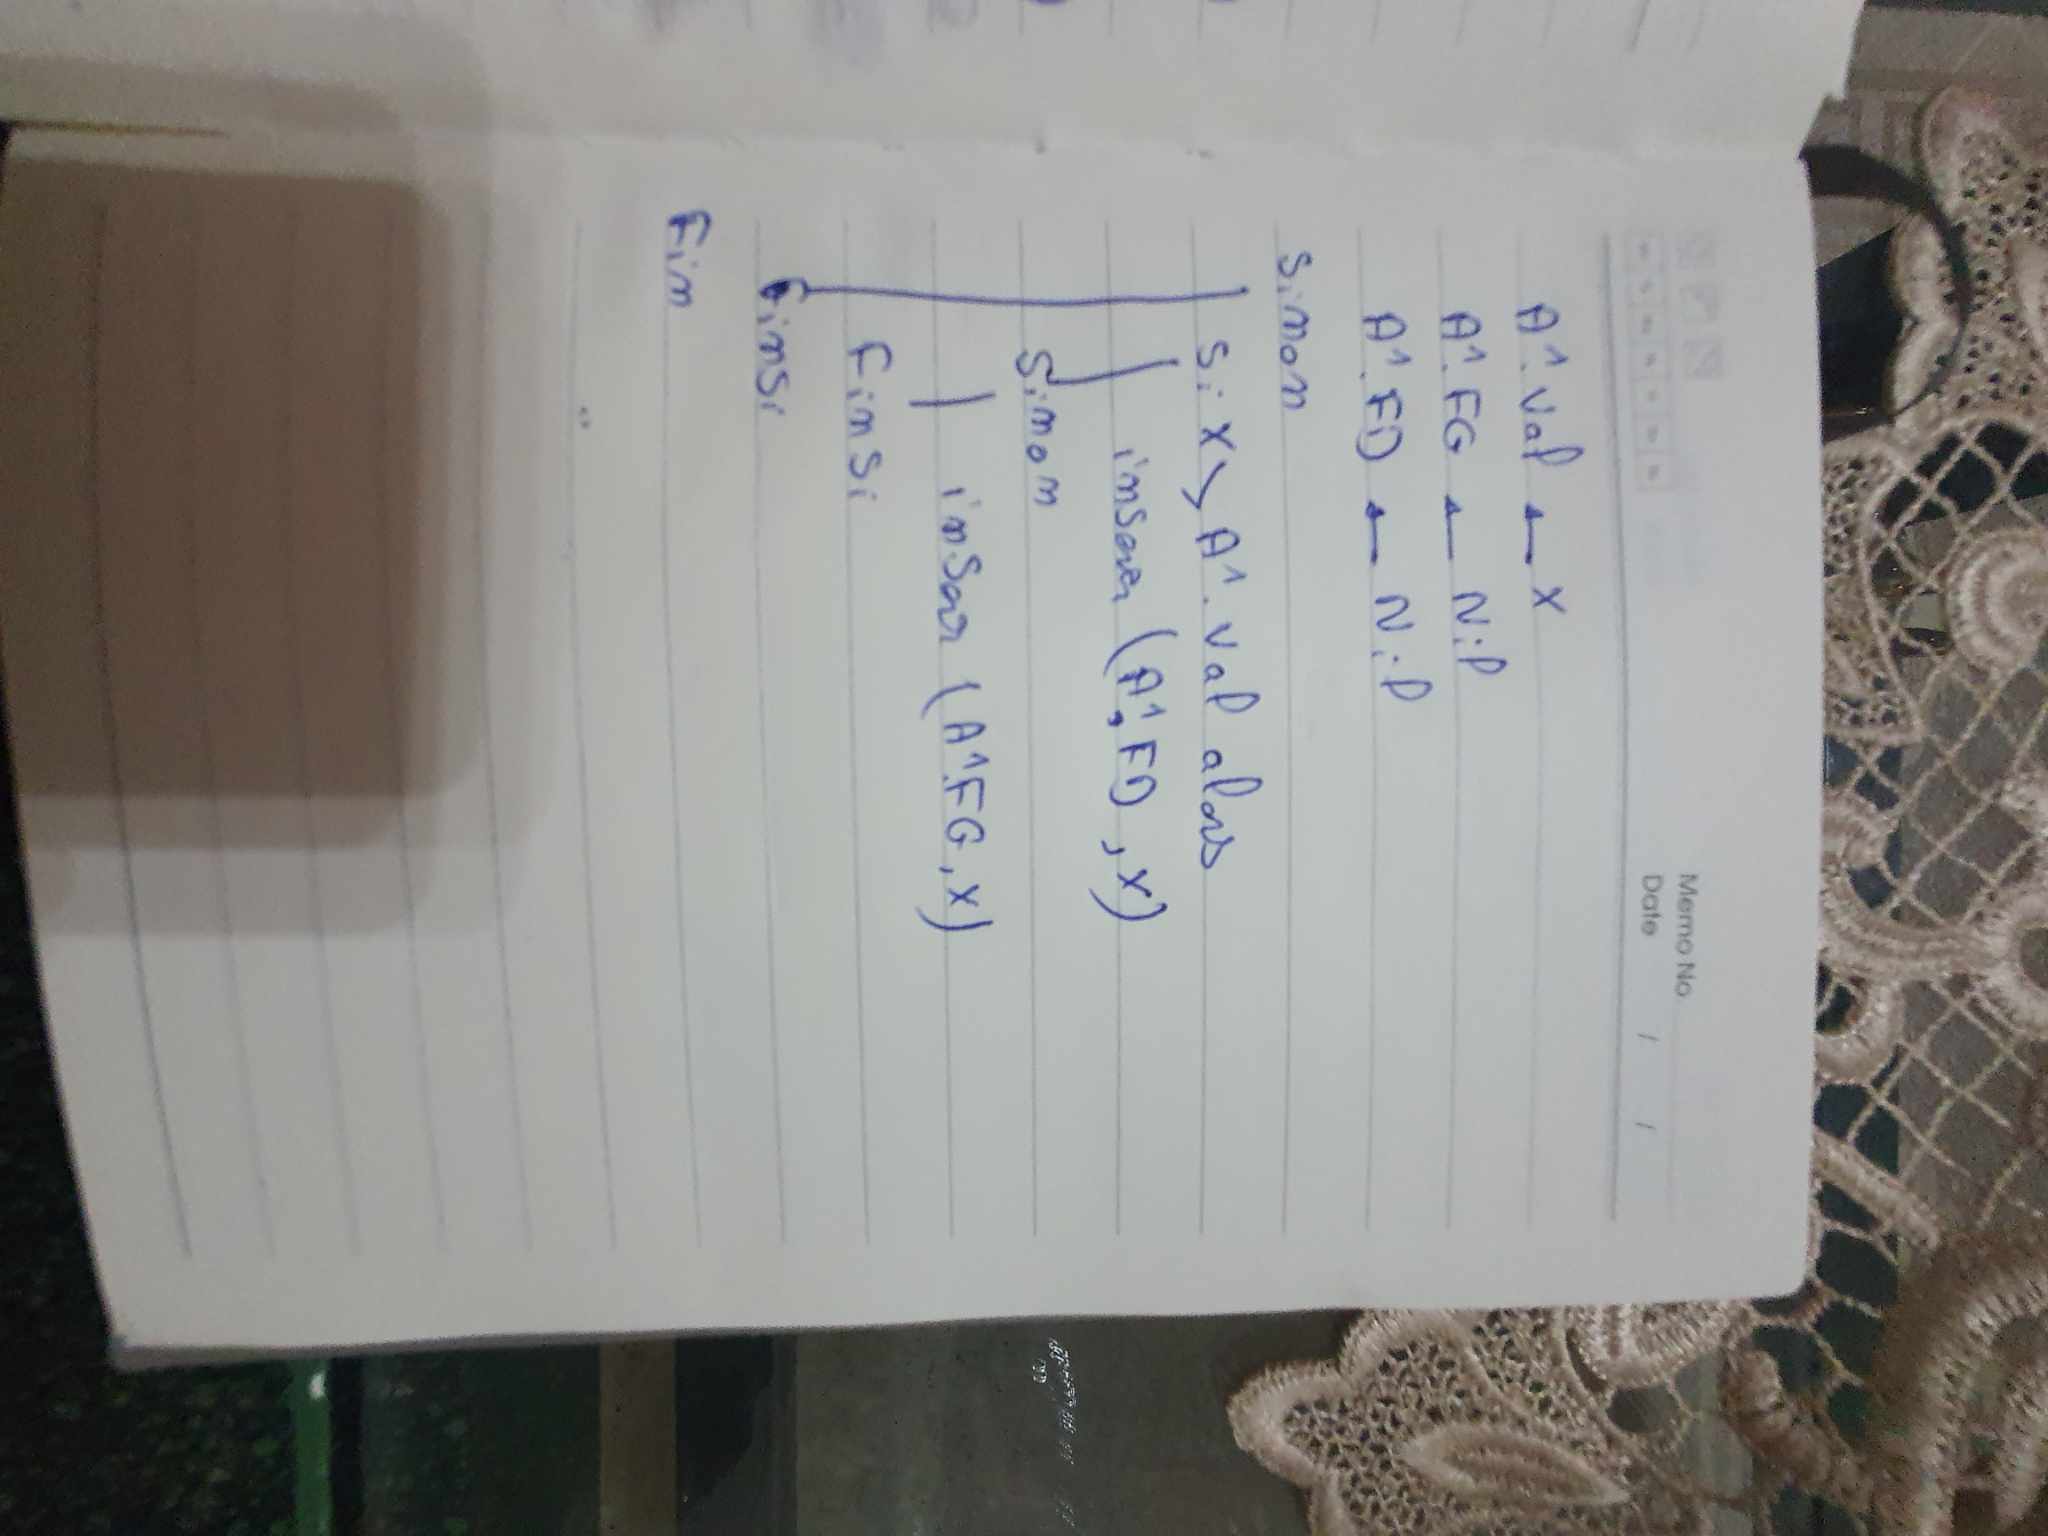 Memo No
Date / /
A^. Val ← X
A^. FG ← Nil
A^. FD ← Nil
Sinon
Si X > A^. Val alors
inserer (A^. FD, X)
Sinon
inserer (A^. FG, X)
Finsi
Finsi
Fin